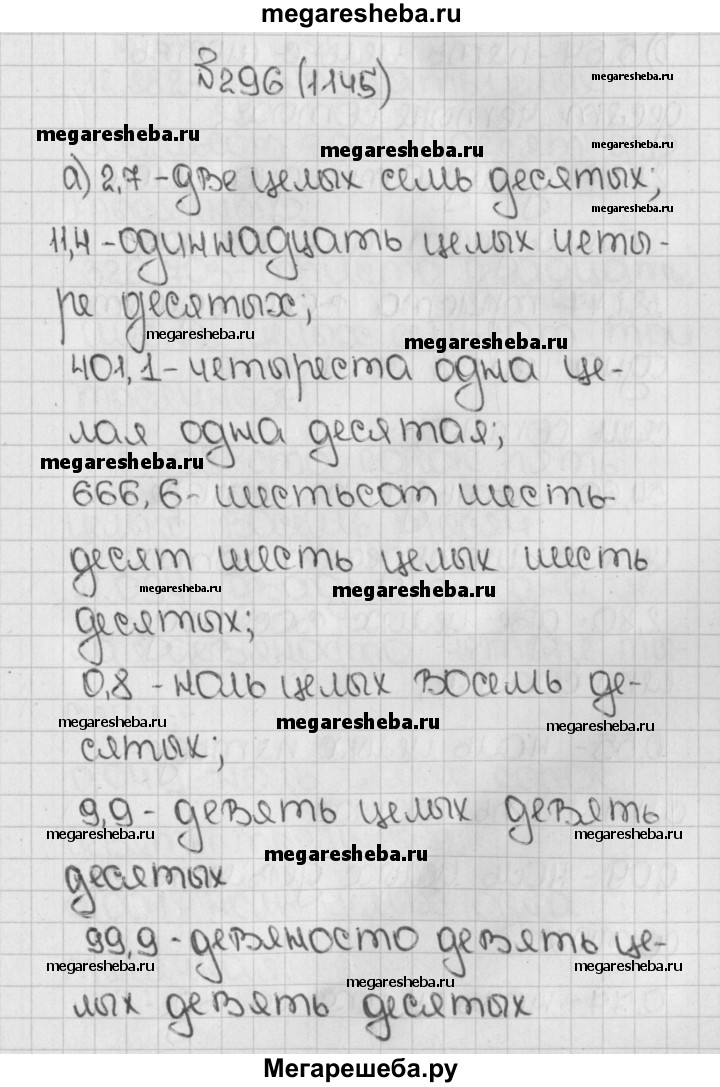 megaresheba.ru
№296 (1145)
megaresheba.ru
megaresheba.ru
megaresheba.ru
megaresheba.ru
а) 2,7 - две целых семь десятых;
megaresheba.ru
11,4 - одиннадцать целых четы-
ре десятых;
megaresheba.ru
megaresheba.ru
401,1 - четыреста одна це-
лая одна десятая;
megaresheba.ru
666,6 - шестьсот шесть-
десят шесть целых шесть
megaresheba.ru
megaresheba.ru
десятых;
0,8 - ноль целых восемь де-
megaresheba.ru
megaresheba.ru
megaresheba.ru
сятых;
9,9 - девять целых девять
megaresheba.ru
megaresheba.ru
megaresheba.ru
десятых
99,9 - девяносто девять це-
megaresheba.ru
megaresheba.ru
megaresheba.ru
лых девять десятых
Мегарешеба.ру